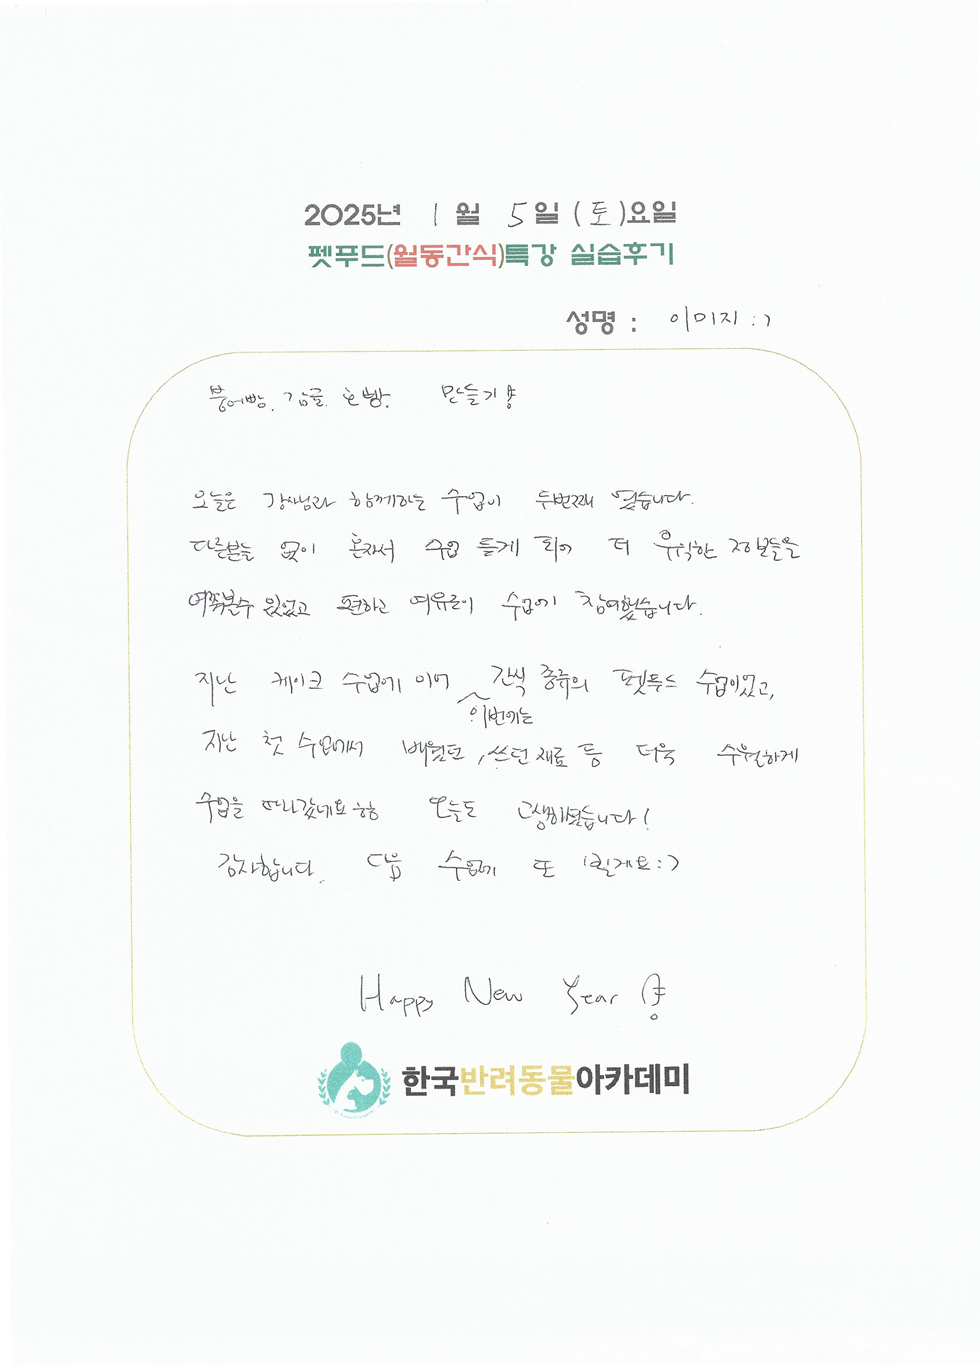 2025년 1월 5일 (토)요일
펫푸드(월동간식)특강 실습후기
성명 : 이미지 :)
붕어빵, 감귤, 호빵, 만들기!
오늘은 강사님과 함께하는 수업이 두번째 였습니다.
다른분들 없이 혼자서 수업 듣게 되어 더 유익한 정보들을
여쭤볼수 있었고 편하고 여유로이 수업에 참여했습니다.
지난 케이크 수업에 이어 이번에는 간식 종류의 펫푸드 수업이었고,
지난 첫 수업에서 배웠던, 쓰던 재료 등 더욱 수월하게
수업을 따라갔네요 ㅎㅎ 오늘도 고생하셨습니다!
감사합니다. 다음 수업에 또 뵐게요 :)
Happy New Year!
한국반려동물아카데미